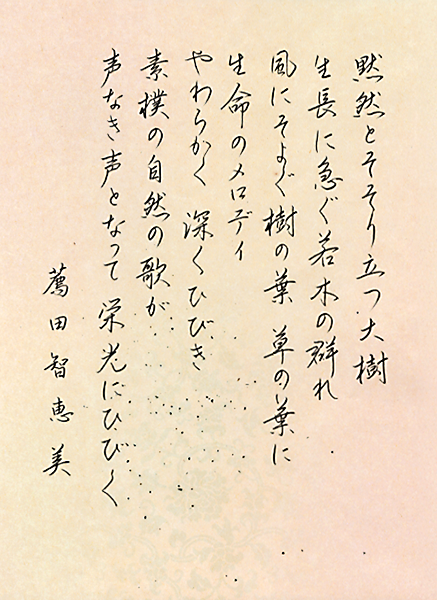 黙然とそそり立つ大樹
生長に急ぐ若木の群れ
風にそよぐ樹の葉 草の葉に
生命のメロディ
やわらかく 深くひびき
素樸の自然の歌が
声なき声となって 栄光にひびく
薦田智恵美